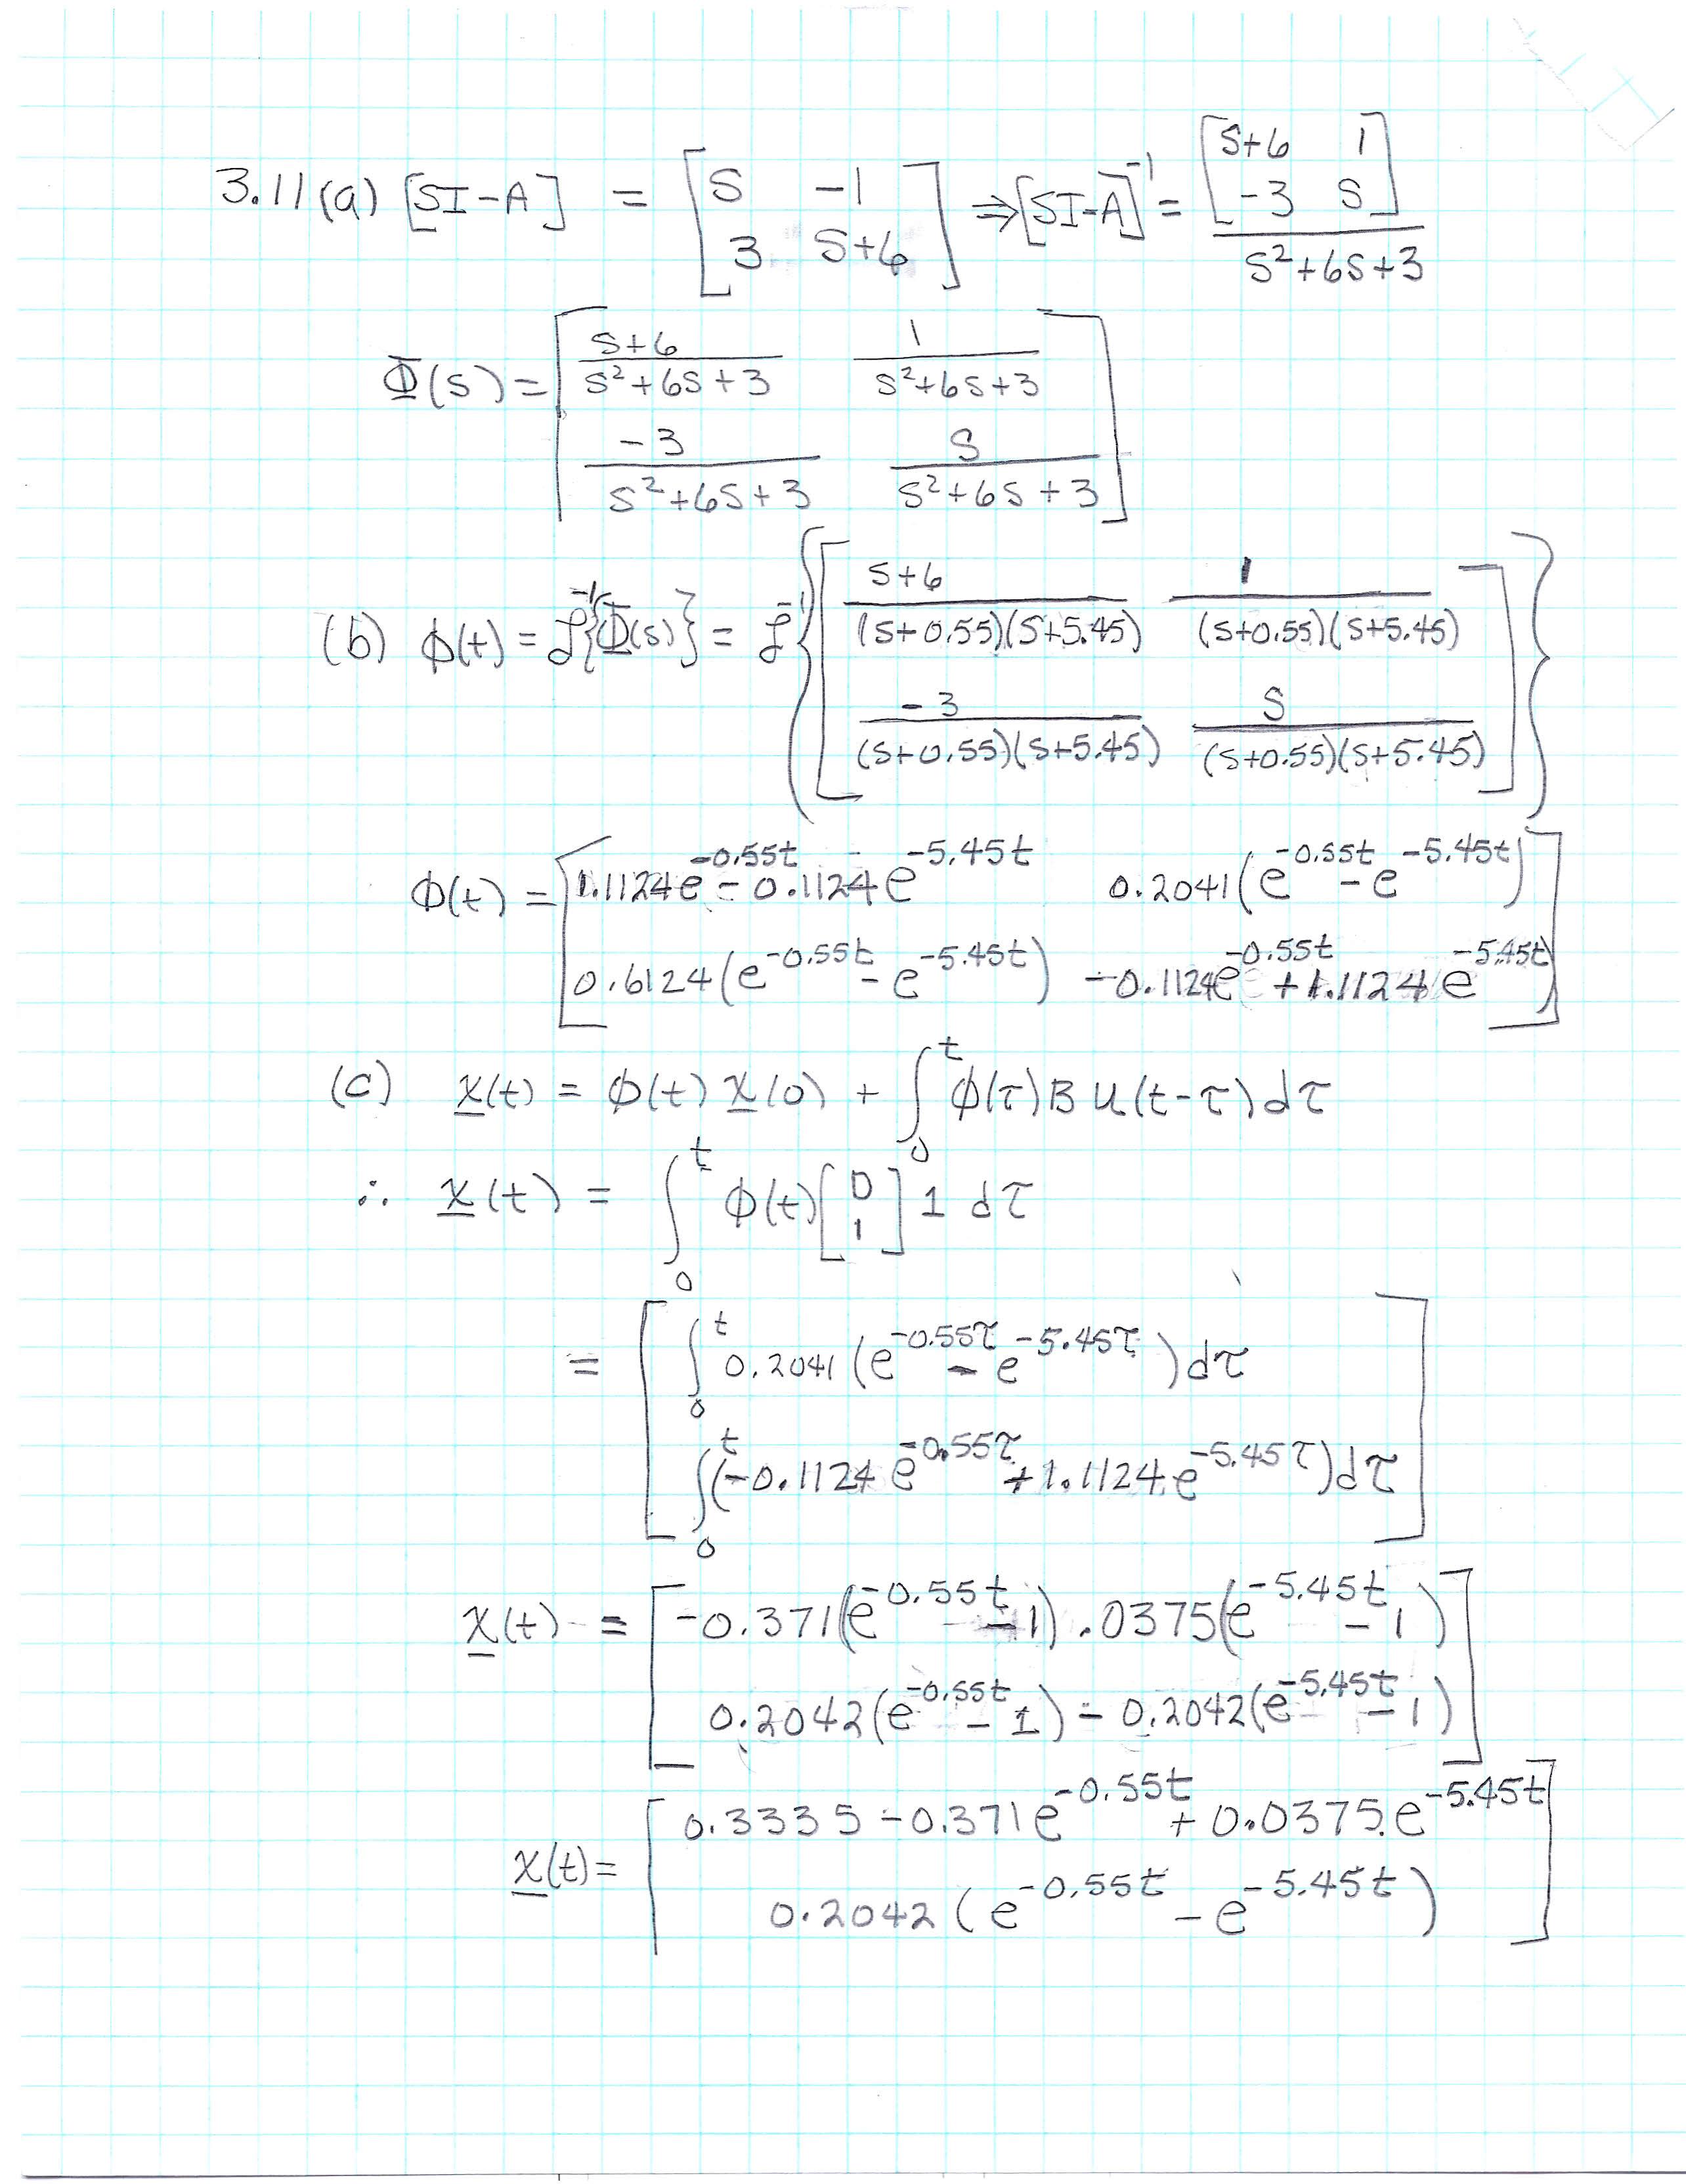 3.11 (a) [SI-A] = [S -1; 3 S+6] ⇒ [SI-A]^-1 = [S+6 1; -3 S] / (S^2+6S+3)
Φ(s) = [(S+6)/(S^2+6S+3) 1/(S^2+6S+3); -3/(S^2+6S+3) S/(S^2+6S+3)]
(b) ϕ(t) = ℒ^-1{Φ(s)} = ℒ^-1{[(S+6)/((S+0.55)(S+5.45)) 1/((S+0.55)(S+5.45)); -3/((S+0.55)(S+5.45)) S/((S+0.55)(S+5.45))]}
ϕ(t) = [1.1124e^-0.55t - 0.1124e^-5.45t 0.2041(e^-0.55t - e^-5.45t); 0.6124(e^-0.55t - e^-5.45t) -0.1124e^-0.55t + 1.1124e^-5.45t]
(c) x(t) = ϕ(t) x(0) + ∫_0^t ϕ(τ) B u(t-τ) dτ
∴ x(t) = ∫_0^t ϕ(t) [0; 1] 1 dτ
= [∫_0^t 0.2041(e^-0.55τ - e^-5.45τ) dτ; ∫_0^t (-0.1124e^-0.55τ + 1.1124e^-5.45τ) dτ]
x(t) = [-0.371(e^-0.55t - 1) .0375(e^-5.45t - 1); 0.2042(e^-0.55t - 1) - 0.2042(e^-5.45t - 1)]
x(t) = [0.3335 - 0.371e^-0.55t + 0.0375e^-5.45t; 0.2042(e^-0.55t - e^-5.45t)]